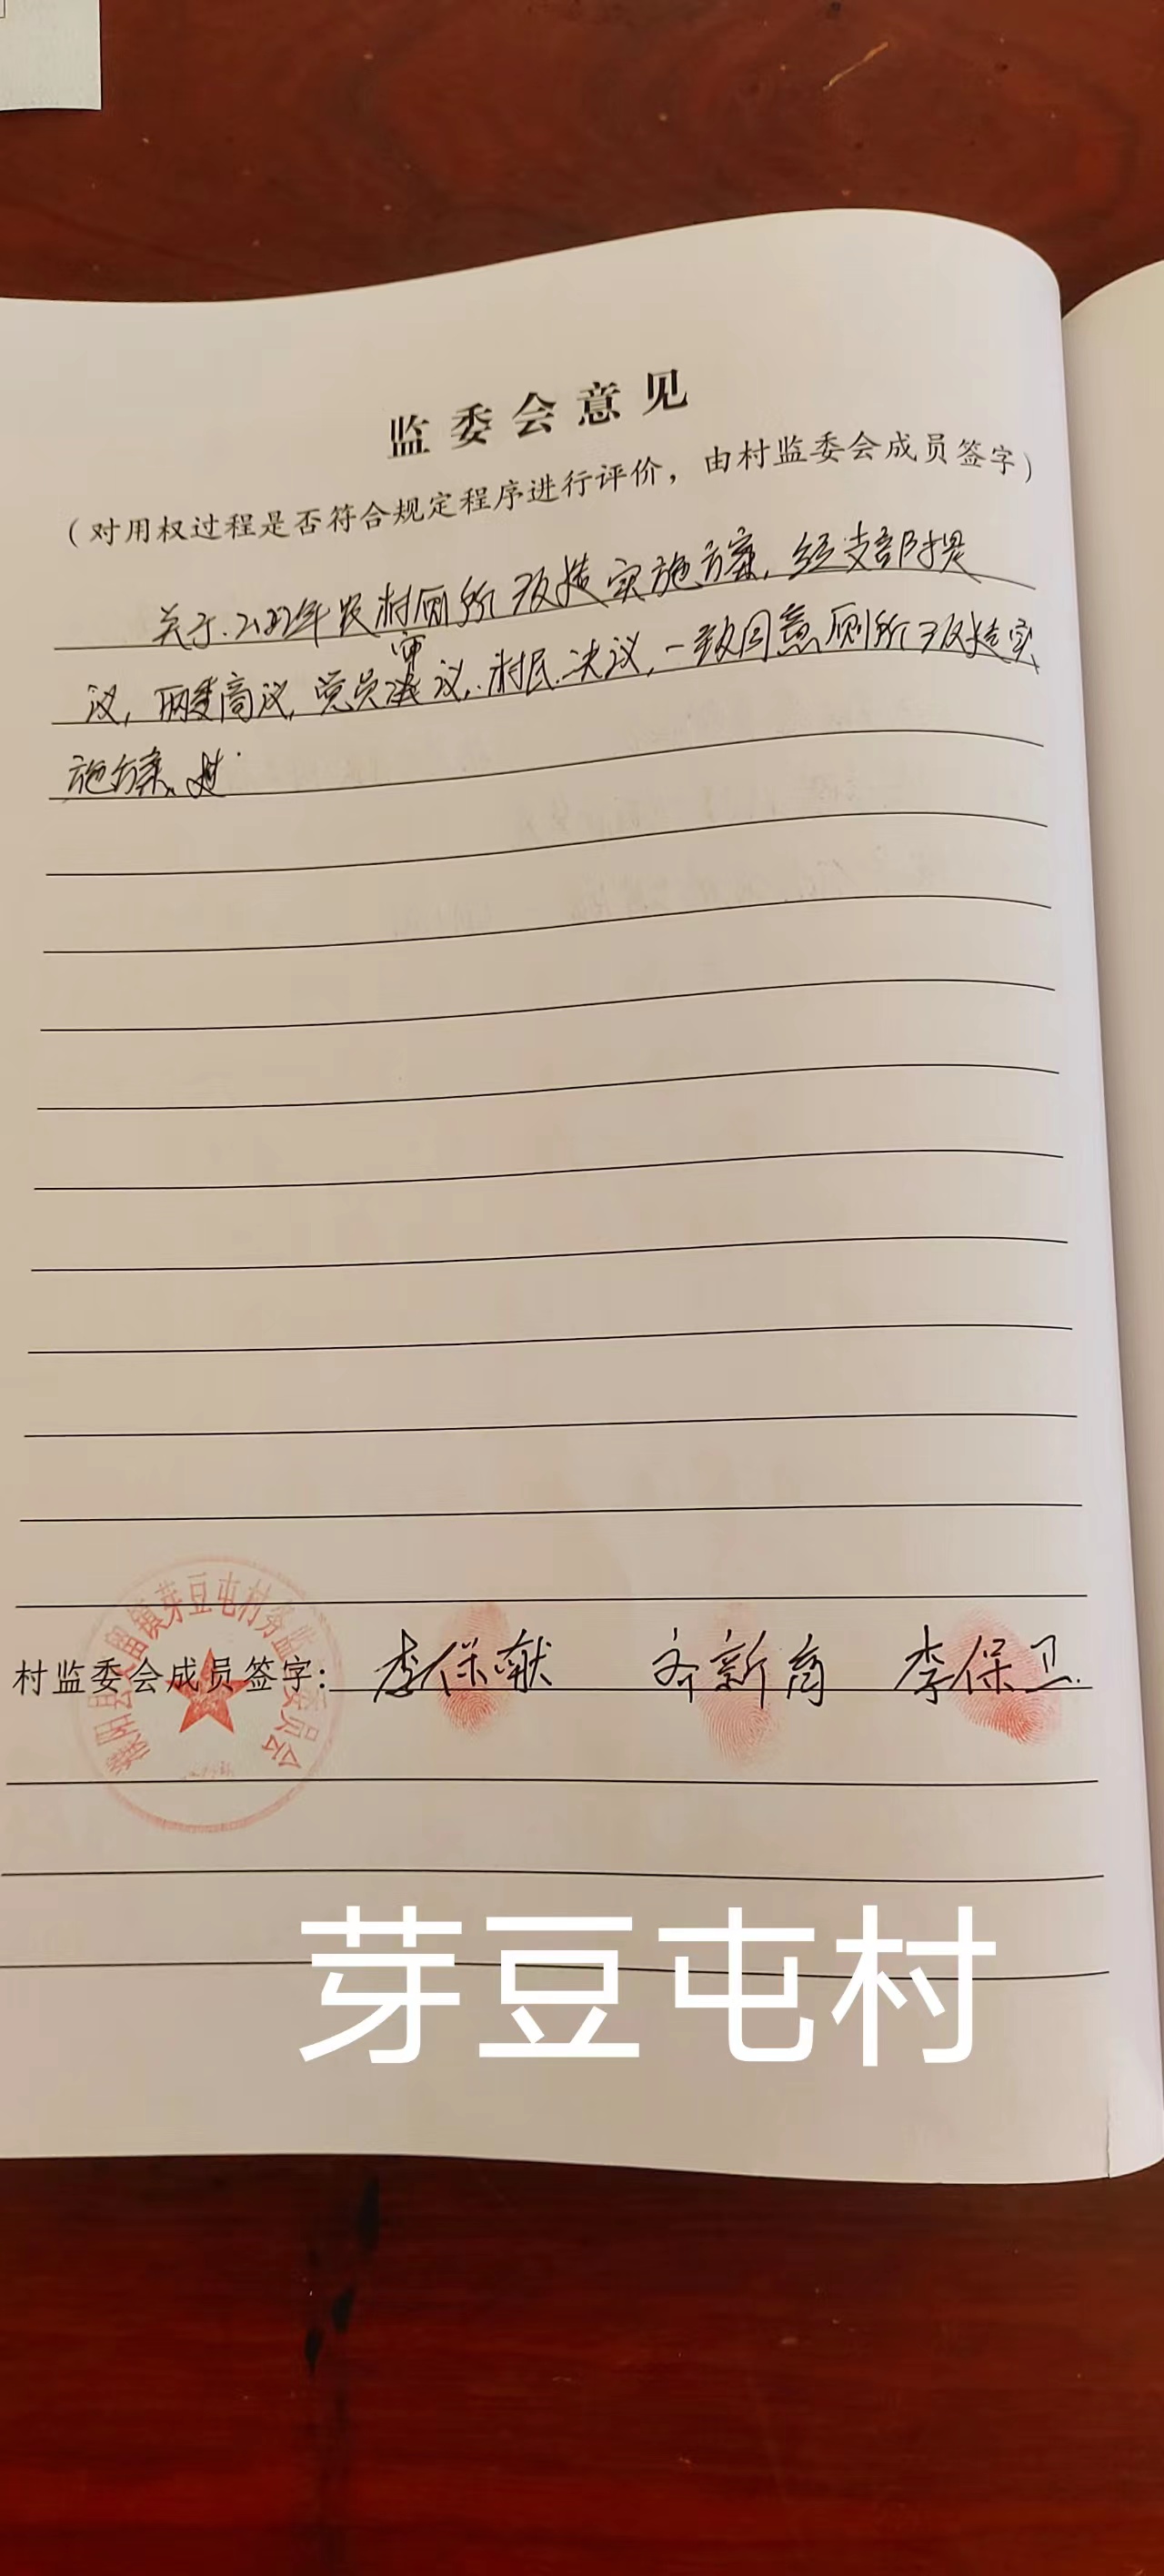 监委会意见
（对用权过程是否符合规定程序进行评价，由村监委会成员签字）
关于2022年农村厕所改造实施方案，经支部提
议，两委商议，党员审议，村民决议，一致同意厕所改造实
施方案。
濮阳县 留镇芽豆屯村务监 委员会
村监委会成员签字：李保献 齐新商 李保卫
芽豆屯村